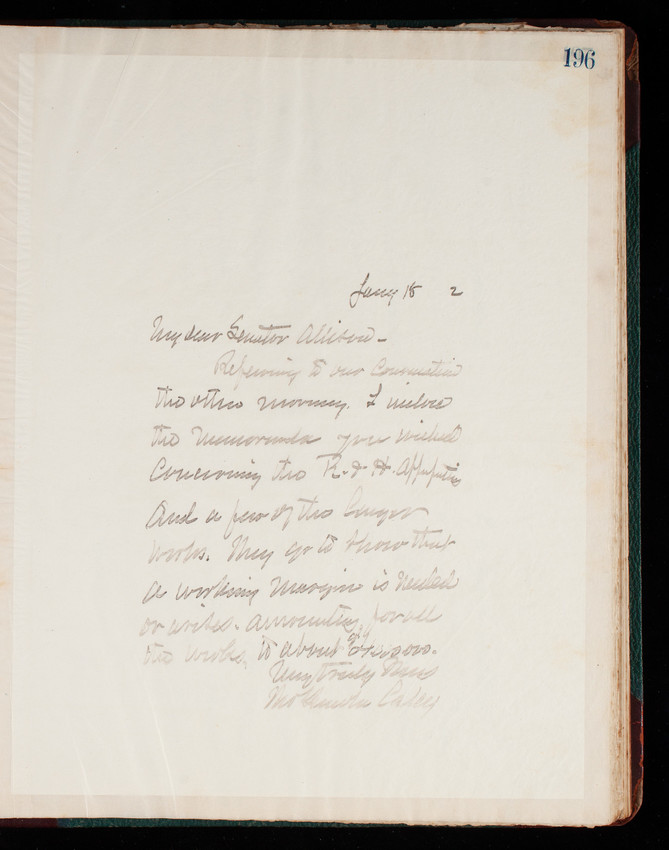 196
Jany 18 2
My dear Senator Allison -
Referring to our conversation
the other morning. I inclose
the memoranda you wished
concerning the R. & H. Appropriation
and a few of the larger
works. They go to show that
a working margin is needed
or arises amounting for all
the works, to about
Very truly yours
Thos Lincoln Casey